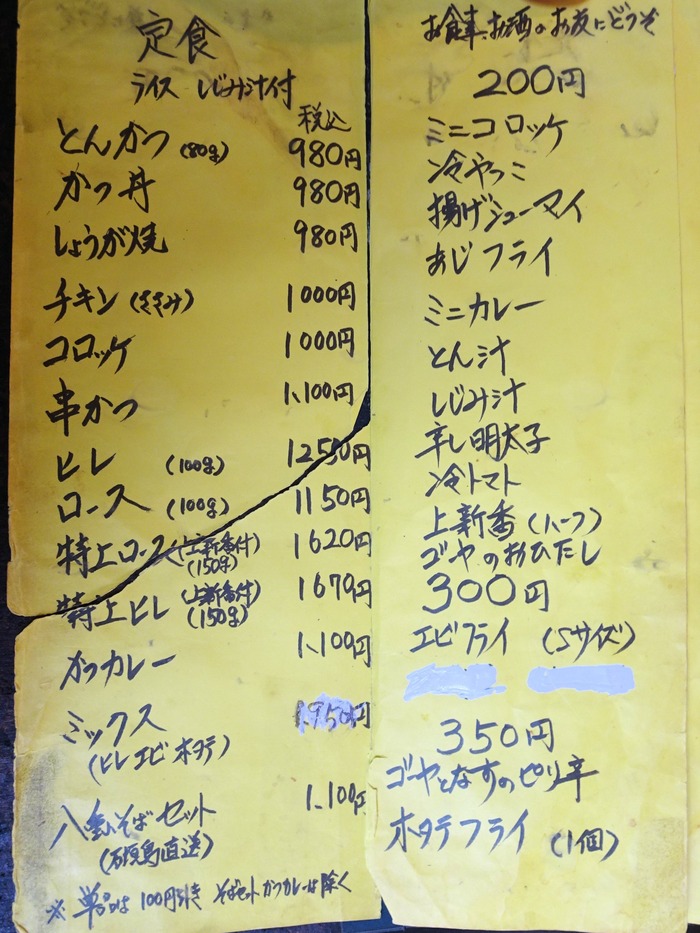 定食
ライス しじみ汁付
税込
とんかつ (80g) 980円
かつ丼 980円
しょうが焼 980円
チキン (ささみ) 1000円
コロッケ 1000円
串かつ 1,100円
ヒレ (100g) 1250円
ロース (100g) 1150円
特上ロース (上新香付) 1620円
(150g)
特上ヒレ (上新香付) 1670円
(150g)
かつカレー 1,100円
ミックス 1,950円
(ヒレ エビ ホタテ)
八重山そばセット 1,100円
(石垣島直送)
※ 単品は 100円引き そばセット かつカレーは除く
お食事、お酒のお友にどうぞ
200円
ミニコロッケ
冷やっこ
揚げシューマイ
あじフライ
ミニカレー
とん汁
しじみ汁
辛し明太子
冷トマト
上新香 (ハーフ)
ゴーヤのおひたし
300円
エビフライ (Sサイズ)
350円
ゴーヤとなすのピリ辛
ホタテフライ (1個)